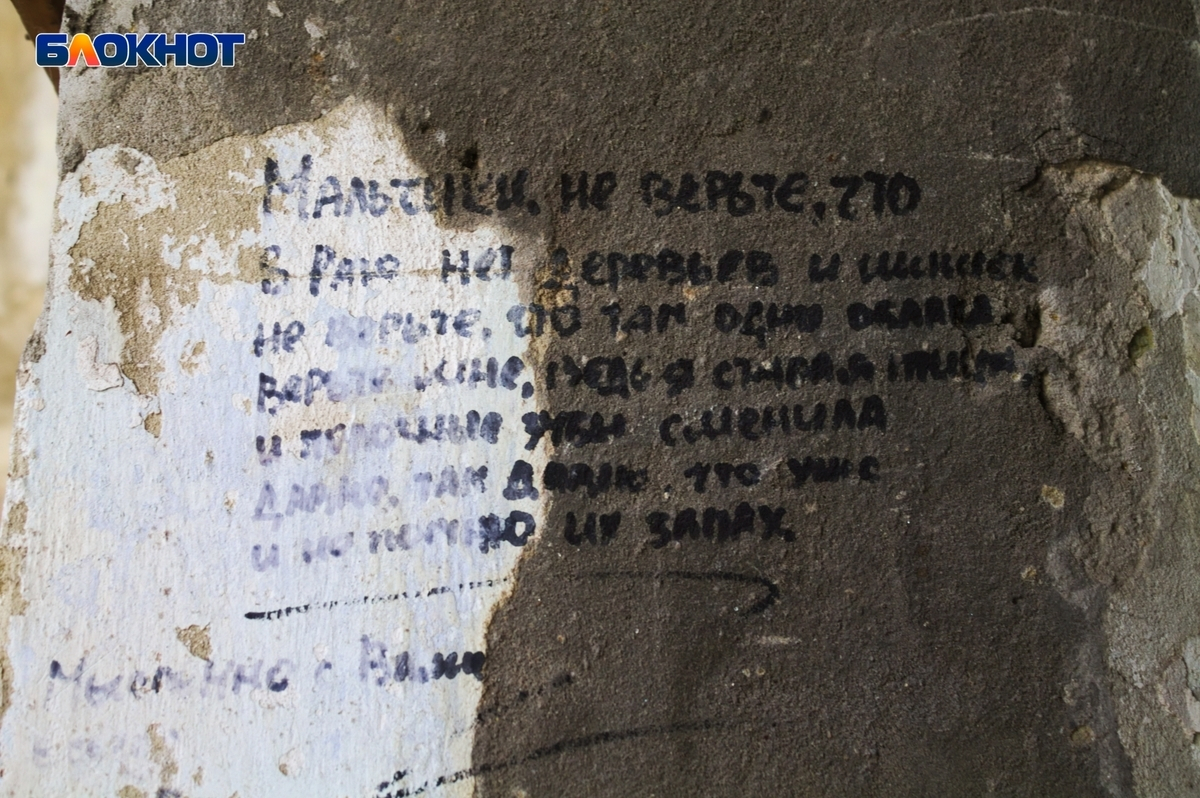 БЛОКНОТ
Мальчики, не верьте, что
в раю нет деревьев и шишек
не верьте, что там одни облака.
верьте мне, ведь я старая птица,
и молочные зубы сменила
давно, так давно, что уже
и не помню их запах.
Мысленно с Вами